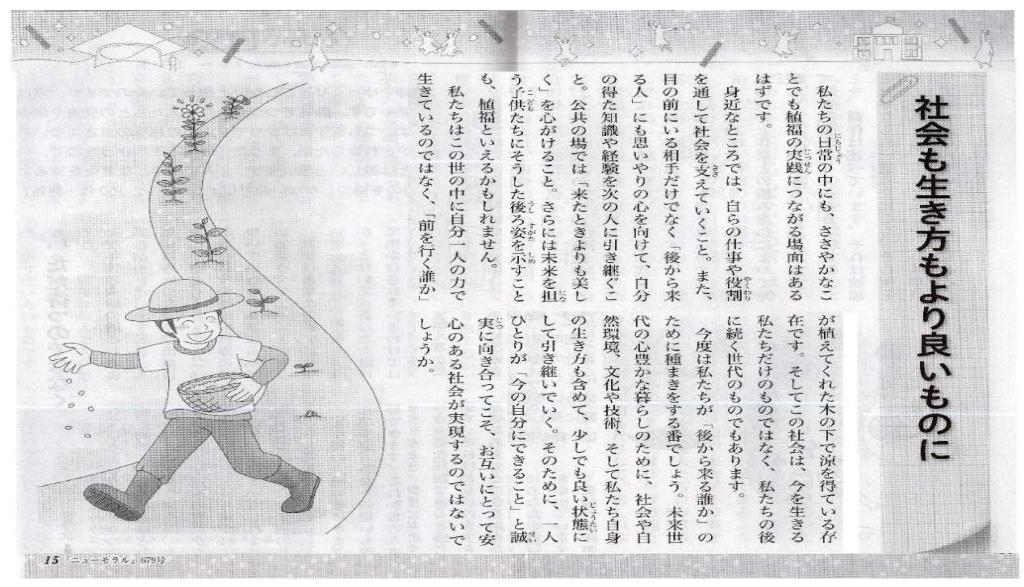 社会も生き方もより良いものに
私たちの日常の中にも、ささやかなこ
とでも植福の実践につながる場面はある
はずです。
身近なところでは、自らの仕事や役割
を通して社会を支えていくこと。また、
目の前にいる相手だけでなく「後から来
る人」にも思いやりの心を向けて、自分
の得た知識や経験を次の人に引き継ぐこ
と。公共の場では「来たときよりも美し
く」を心がけること。さらには未来を担
う子供たちにそうした後ろ姿を示すこと
も、植福といえるかもしれません。
私たちはこの世の中に自分一人の力で
生きているのではなく、「前を行く誰か」
が植えてくれた木の下で涼を得ている存
在です。そしてこの社会は、今を生きる
私たちだけのものではなく、私たちの後
に続く世代のものでもあります。
今度は私たちが「後から来る誰か」の
ために種まきをする番でしょう。未来世
代の心豊かな暮らしのために、社会や自
然環境、文化や技術、そして私たち自身
の生き方も含めて、少しでも良い状態に
して引き継いでいく。そのために、一人
ひとりが「今の自分にできること」と誠
実に向き合ってこそ、お互いにとって安
心のある社会が実現するのではないで
しょうか。
15「ニューモラル」679号